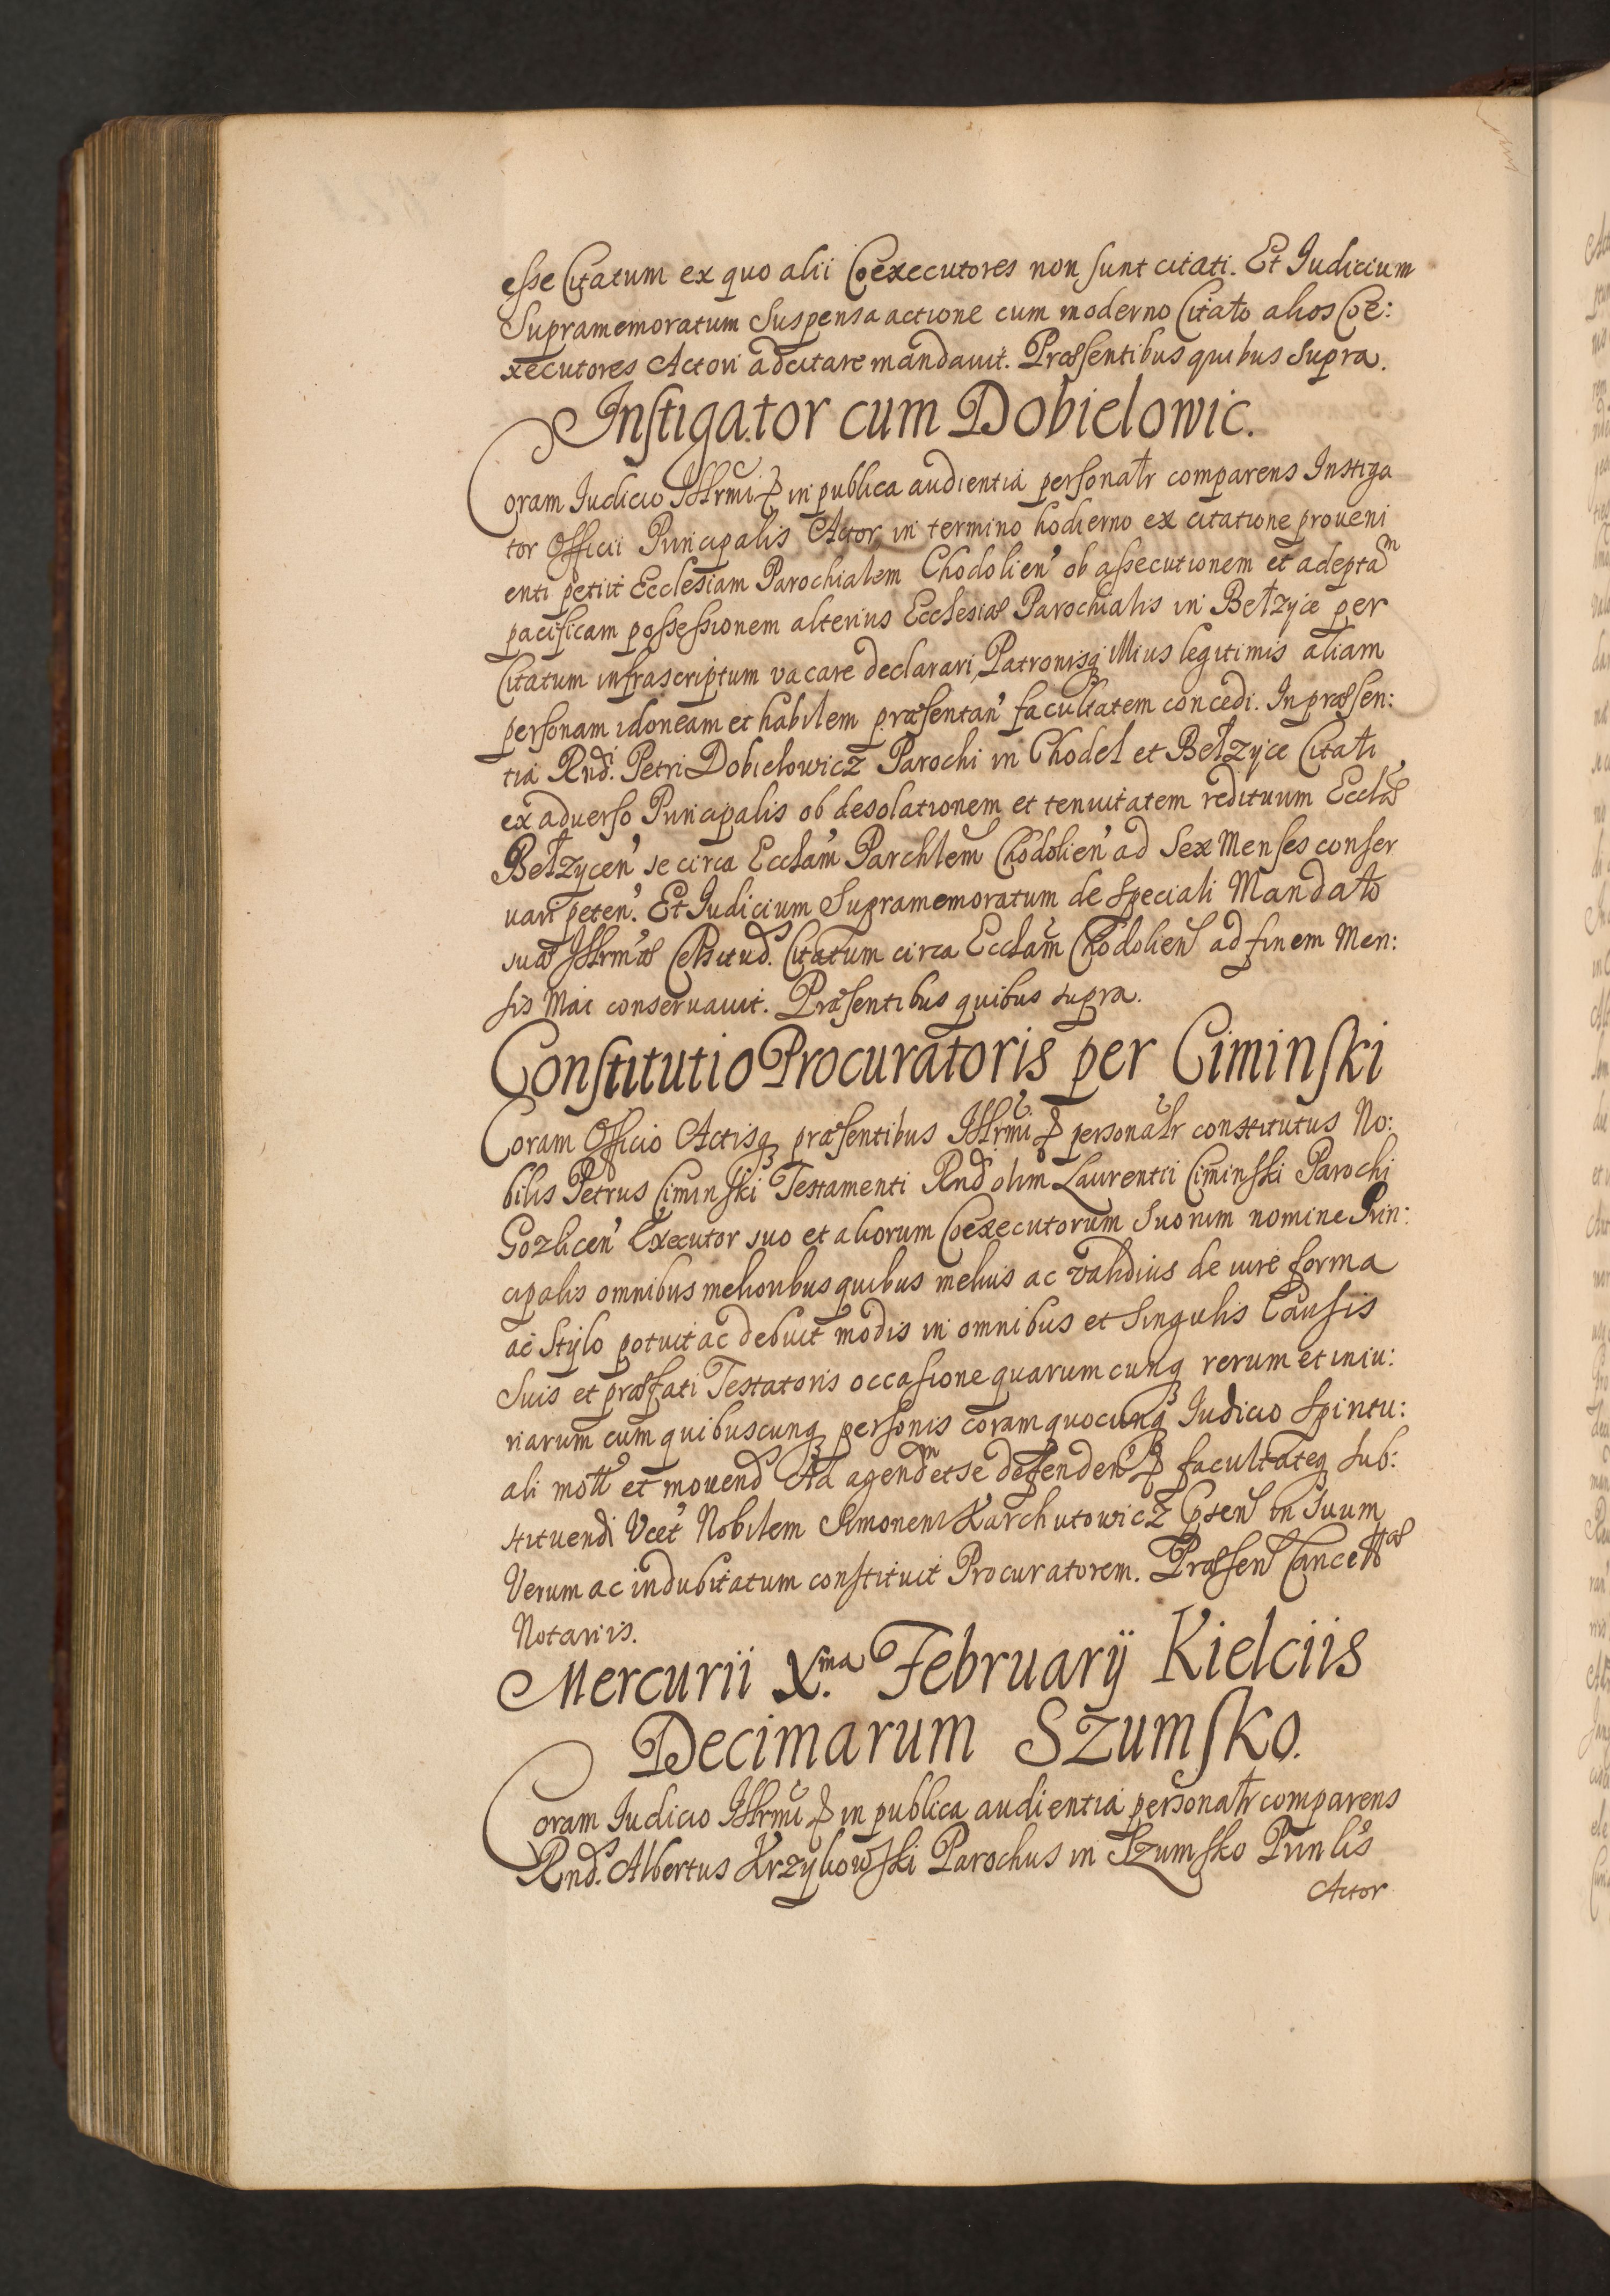 esse Citatum ex quo alii Coexecutores non sunt citati. Et Iudicium
Supramemoratum Suspensa actione cum moderno Citato alios Coe:
xecutores Actori adcitare mandavit. Præsentibus quibus supra.
Instigator cum Dobielowic.
Coram Iudicio Illrmi in publica audientia personalr comparens Instiga
tor Officii Principalis Actor in termino hodierno ex citatione proveni
enti petiit Ecclesiam Parochialem Chodolien' ob assecutionem et adeptam
pacificam possessionem alterius Ecclesiæ Parochialis in Bełzyce per
Citatum infrascriptum vacare declarari, Patronisq illius legitimis aliam
personam idoneam et habilem præsentan' facultatem concedi. In præsen:
tia Rndi. Petri Dobielowicz Parochi in Chodel et Bełzyce Citati
ex adverso Principalis ob desolationem et tenuitatem redituum Ecclæ
Bełzycen' se circa Ecclam Parchlem Chodolien' ad sex Menses conser
vari peten'. Et Iudicium Supramemoratum de speciali Mandato
suæ Illrmæ Celsitud. Citatum circa Ecclam Chodolien ad finem Men:
sis Mai conservavit. Præsentibus quibus supra.
Constitutio Procuratoris per Ciminski
Coram Officio Actisq præsentibus Illrmi personalr constitutus No:
bilis Petrus Ciminski Testamenti Rnd olim Laurentii Ciminski Parochi
Gozlicen' Executor suo et aliorum Coexecutorum suorum nomine Prin:
cipalis omnibus melioribus quibus melius ac validius de iure forma
ac Stylo potuit ac debuit modis in omnibus et singulis Causis
suis et præfati Testatoris occasione quarumcunq rerum et iniu:
riarum cum quibuscunq personis coram quocunq Iudicio Spiritu:
ali mott et movend Ad agendm et se defenden facultateq sub:
stituendi Nobilem Simonem Karchutowicz in suum
Verum ac indubitatum constituit Procuratorem. Præsen Cancellæ
Notariis.
Mercurii X.ma Februarij Kielciis
Decimarum Szumsko.
Coram Iudicio Illrmi in publica audientia personalr comparens
Rnd. Albertus Krzykowski Parochus in Szumsko Prinlis
Actor